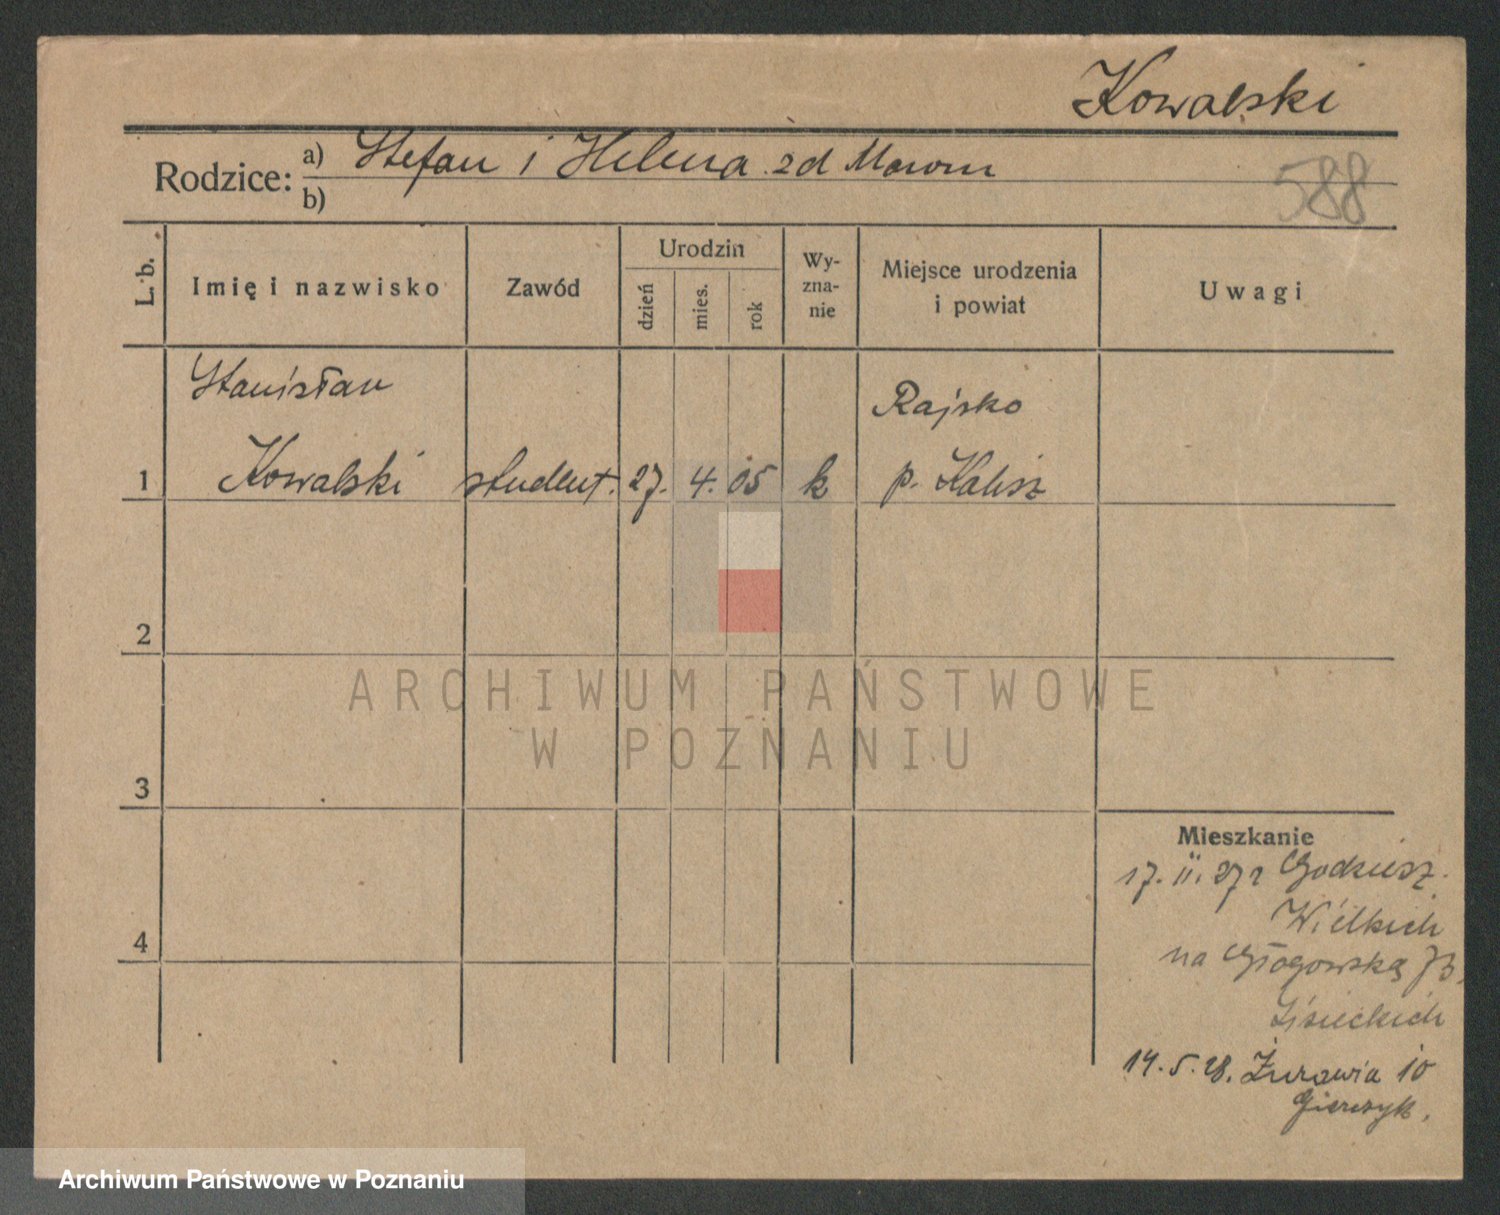 Kowalski
Rodzice: a) Stefan i Helena zd
b)
588
L. b.
Imię i nazwisko
Zawód
Urodzin
dzień
mies.
rok
Wy-
zna-
nie
Miejsce urodzenia
i powiat
Uwagi
Stanisław
Rajsko
1 Kowalski student. 27. 4. 05 k p. Kalisz
2
3
4
ARCHIWUM PAŃSTWOWE
W POZNANIU
Mieszkanie
17. II. 27 z Godziesz.
Wielkich
na Głogowską 73.
Lisieckich
14. 5. 28. Żurawia 10
Archiwum Państwowe w Poznaniu